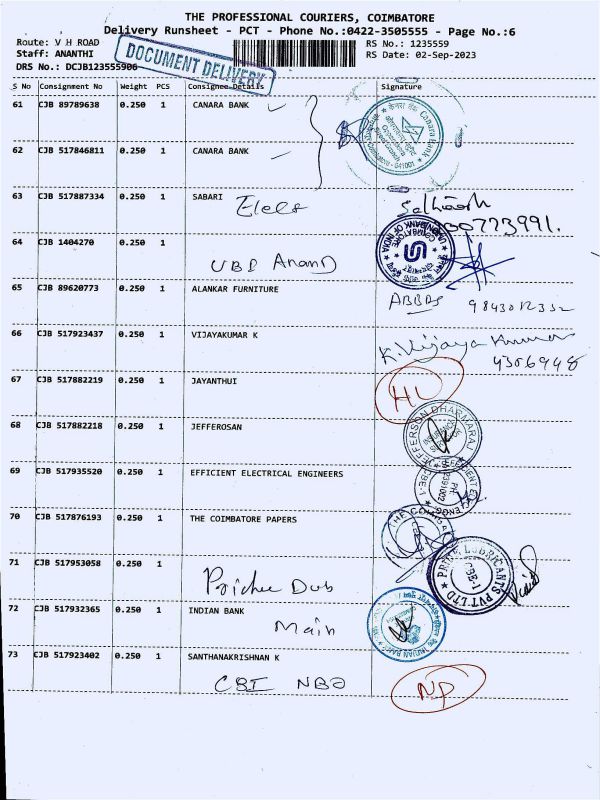 THE PROFESSIONAL COURIERS, COIMBATORE
Delivery Runsheet - PCT - Phone No.:0422-3505555 - Page No.:6
Route: V H ROAD
RS No.: 1235559
Staff: ANANTHI
RS Date: 02-Sep-2023
DRS No.: DCJB123555906
DOCUMENT DELIVERY
S No Consignment No Weight PCS Consignee Details Signature
61 CJB 89789638 0.250 1 CANARA BANK
Canara Bank
641001
62 CJB 517846811 0.250 1 CANARA BANK
63 CJB 517887334 0.250 1 SABARI
Elecs
64 CJB 1404270 0.250 1
UBI Anand
UNION BANK OF INDIA
COIMBATORE
65 CJB 89620773 0.250 1 ALANKAR FURNITURE
ABBAS 9843012332
66 CJB 517923437 0.250 1 VIJAYAKUMAR K
K. Vijaya Kumar
4306948
67 CJB 517882219 0.250 1 JAYANTHUI
HL
68 CJB 517882218 0.250 1 JEFFEROSAN
JEFFERSON DHARMARAJ
69 CJB 517935520 0.250 1 EFFICIENT ELECTRICAL ENGINEERS
70 CJB 517876193 0.250 1 THE COIMBATORE PAPERS
71 CJB 517953058 0.250 1
PRIDE LUBRICANTS PVT LTD
CBE-1
72 CJB 517932365 0.250 1 INDIAN BANK
Main
INDIAN BANK
73 CJB 517923402 0.250 1 SANTHANAKRISHNAN K
NP